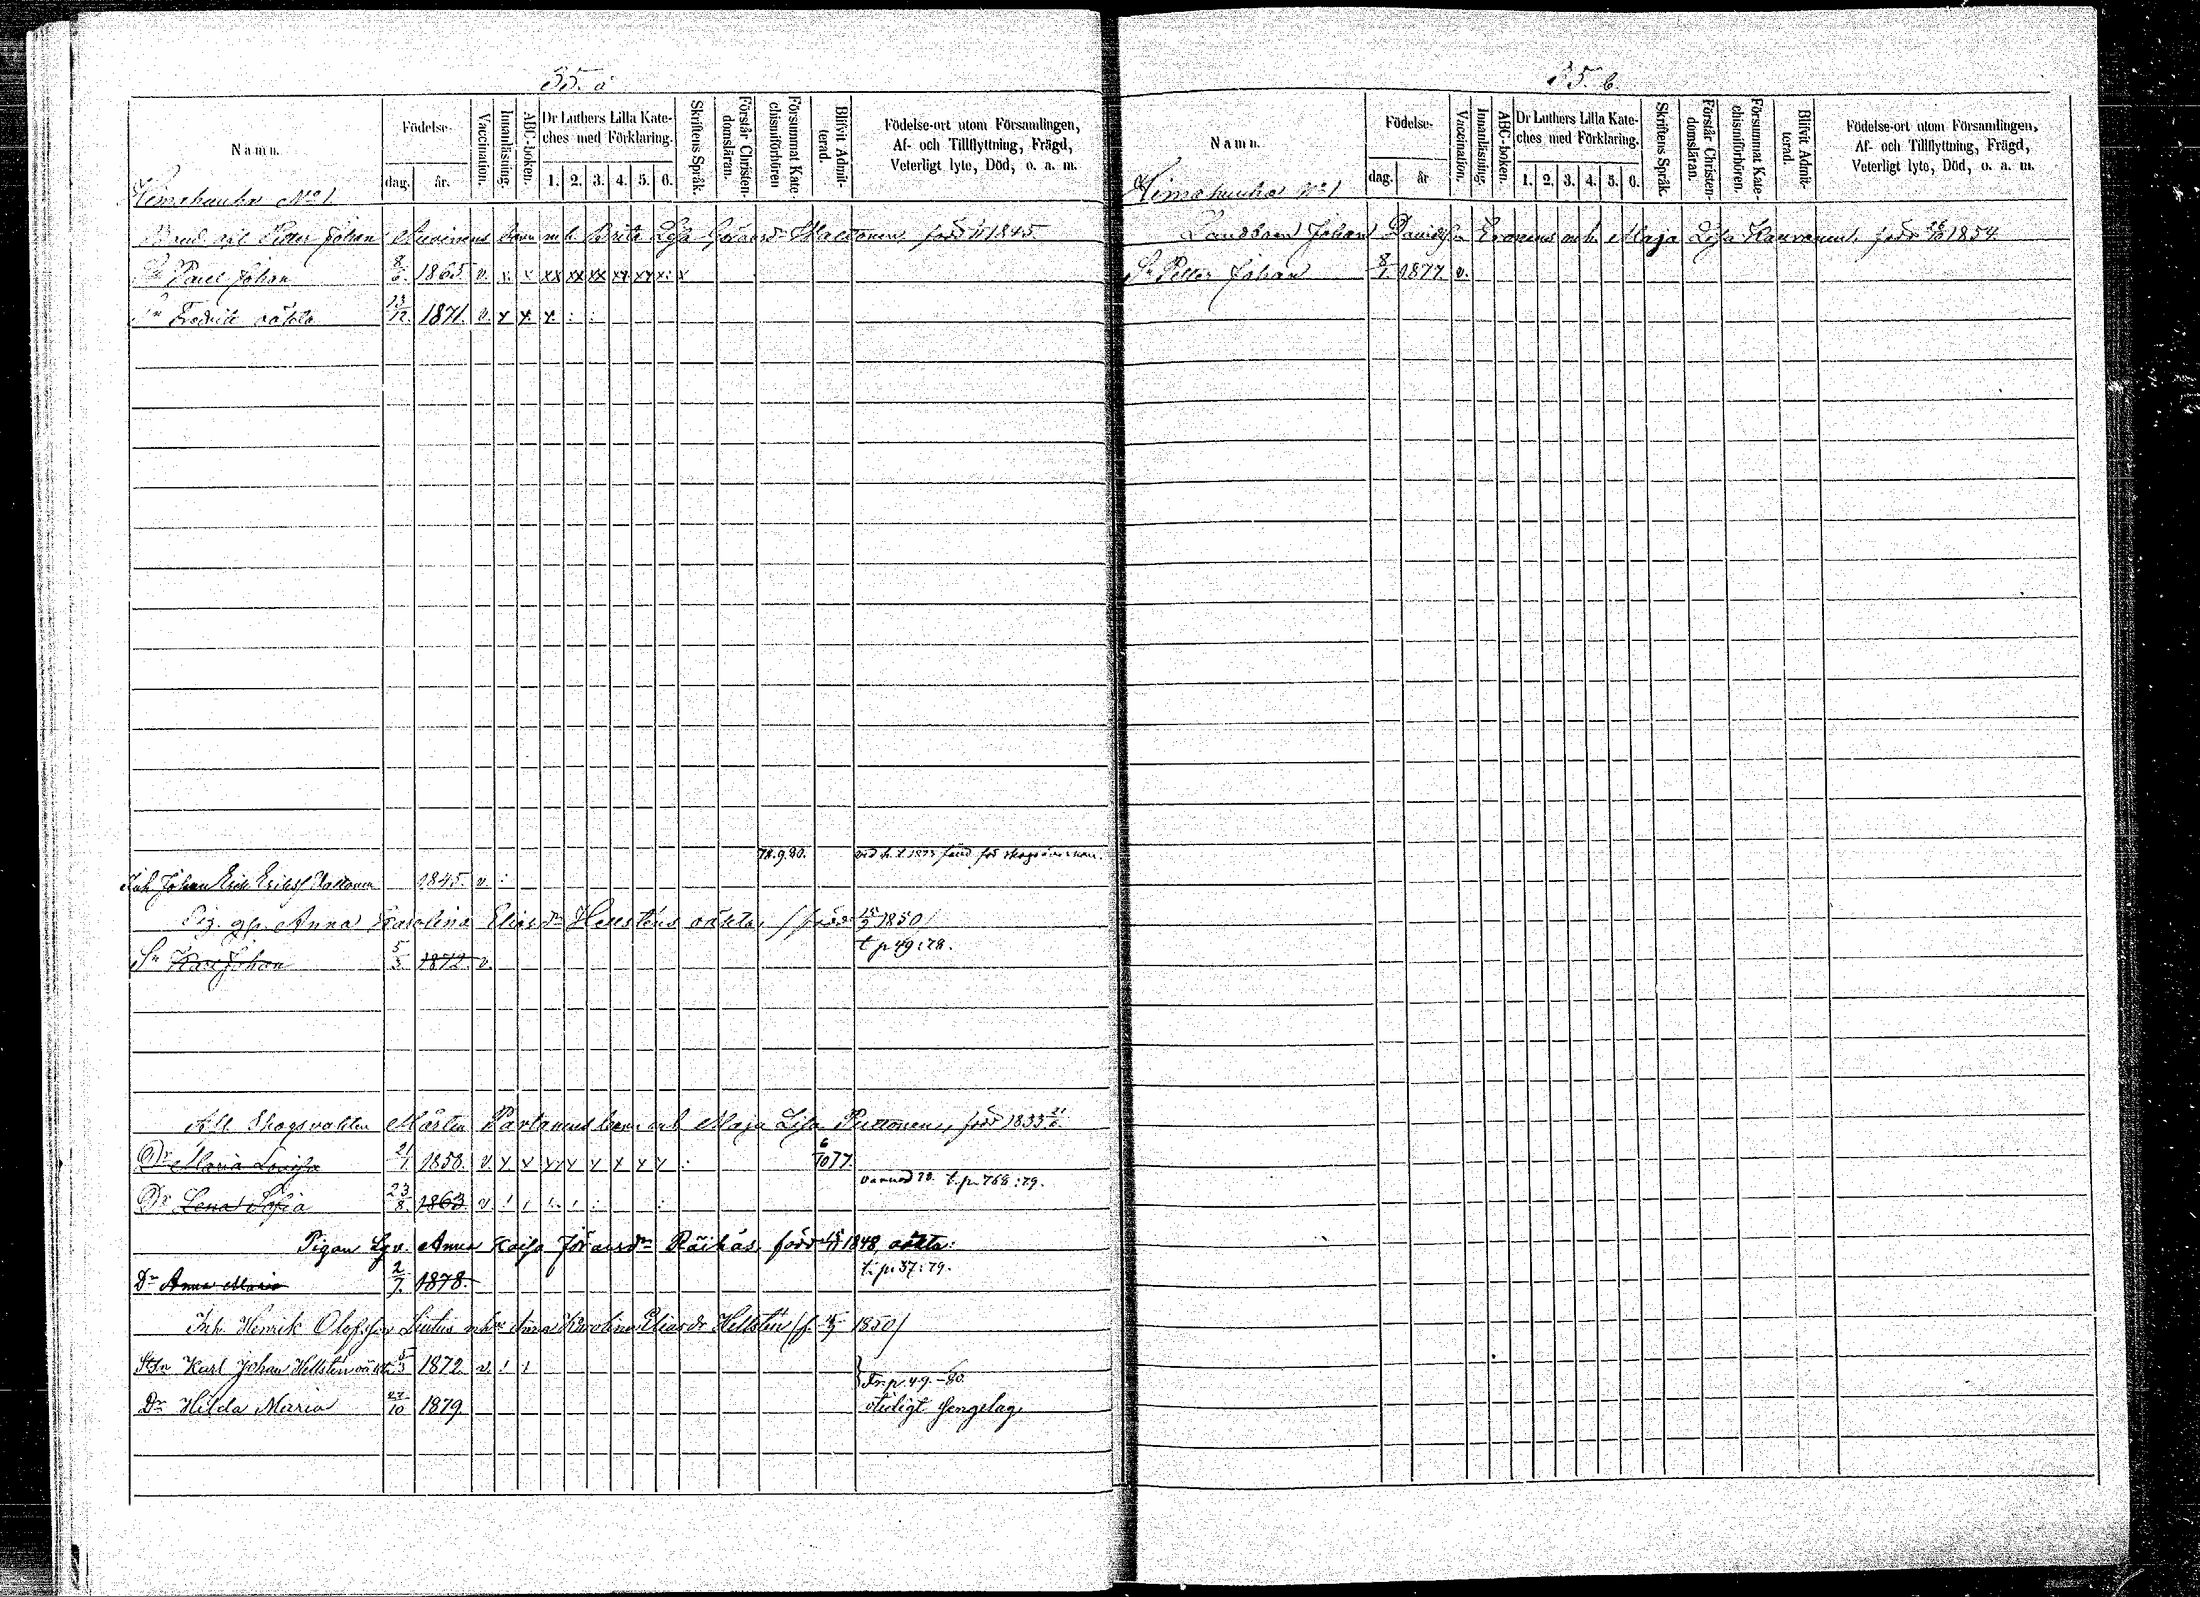 35. a
Namn.
Födelse-
dag.
år.
Vaccination.
Innanläsning.
ABC-boken.
Dr Luthers Lilla Kate-
ches med Förklaring.
1. 2. 3. 4. 5. 6.
Skriftens Språk.
Förstår Christen-
domsläran.
Försummat Kate-
chismiförhören
Blifvit Admit-
terad.
Födelse-ort utom Församlingen,
Af- och Tillflyttning, Frägd,
Veterligt lyte, Död, o. a. m.
No 1
Petter Johan barn m. h. Brita född 1845
Sn Paul Johan 8/6. 1865. v. x x xx xx xx xx xx x: x
Sn Fredrik oäkta 13/12. 1871. v. x x. x. : :
78.9.80.
Inh Johan Erik Erikss 1845. v. :
Pig. Anna Karolina Eliasdr Hellsténs oäkta, /född 15/9 1850/
t. p 49:78.
Sn Karl Johan 5/3 1872. v.
Skogsvakten Mårten Partanens barn m. h Maja Lisa född 1833 21/6.
Dr Maria Lovisa 21/1. 1858. v. x x xx x x x x x : 6/10 77.
t. p. 768:79.
Dr Lena Sofia 23/8. 1863. v. ! ! !. ! : :
Pigan Lgv. Anna Kaisa Jöransdr Räihäs, född 1848, oäkta:
t. p. 37:79.
Dr Anna Maria 2/7. 1878.
Inh. Henrik Olofsson m h Anna Karolina Eliasdr Hellstén /f. 15/9 1850/
StSn Karl Johan Hellstén oäkta 5/3 1872 v. ! !
Fr. p. 49.-80.
Dr Hilda Maria 27/10 1879
35. b.
Namn.
Födelse-
dag.
år
Vaccination.
Innanläsning.
ABC-boken.
Dr Luthers Lilla Kate-
ches med Förklaring.
1. 2. 3. 4. 5. 6.
Skriftens Språk.
Förstår Christen-
domsläran.
Försummat Kate-
chismiförhören.
Blifvit Admit-
terad.
Födelse-ort utom Församlingen,
Af- och Tillflyttning, Frägd,
Veterligt lyte, Död, o. a. m.
No 1
Landbond Johan Davidsson Eronens m h. Maja Lisa född 1854.
Sn Petter Johan 8/1. 1877 v.